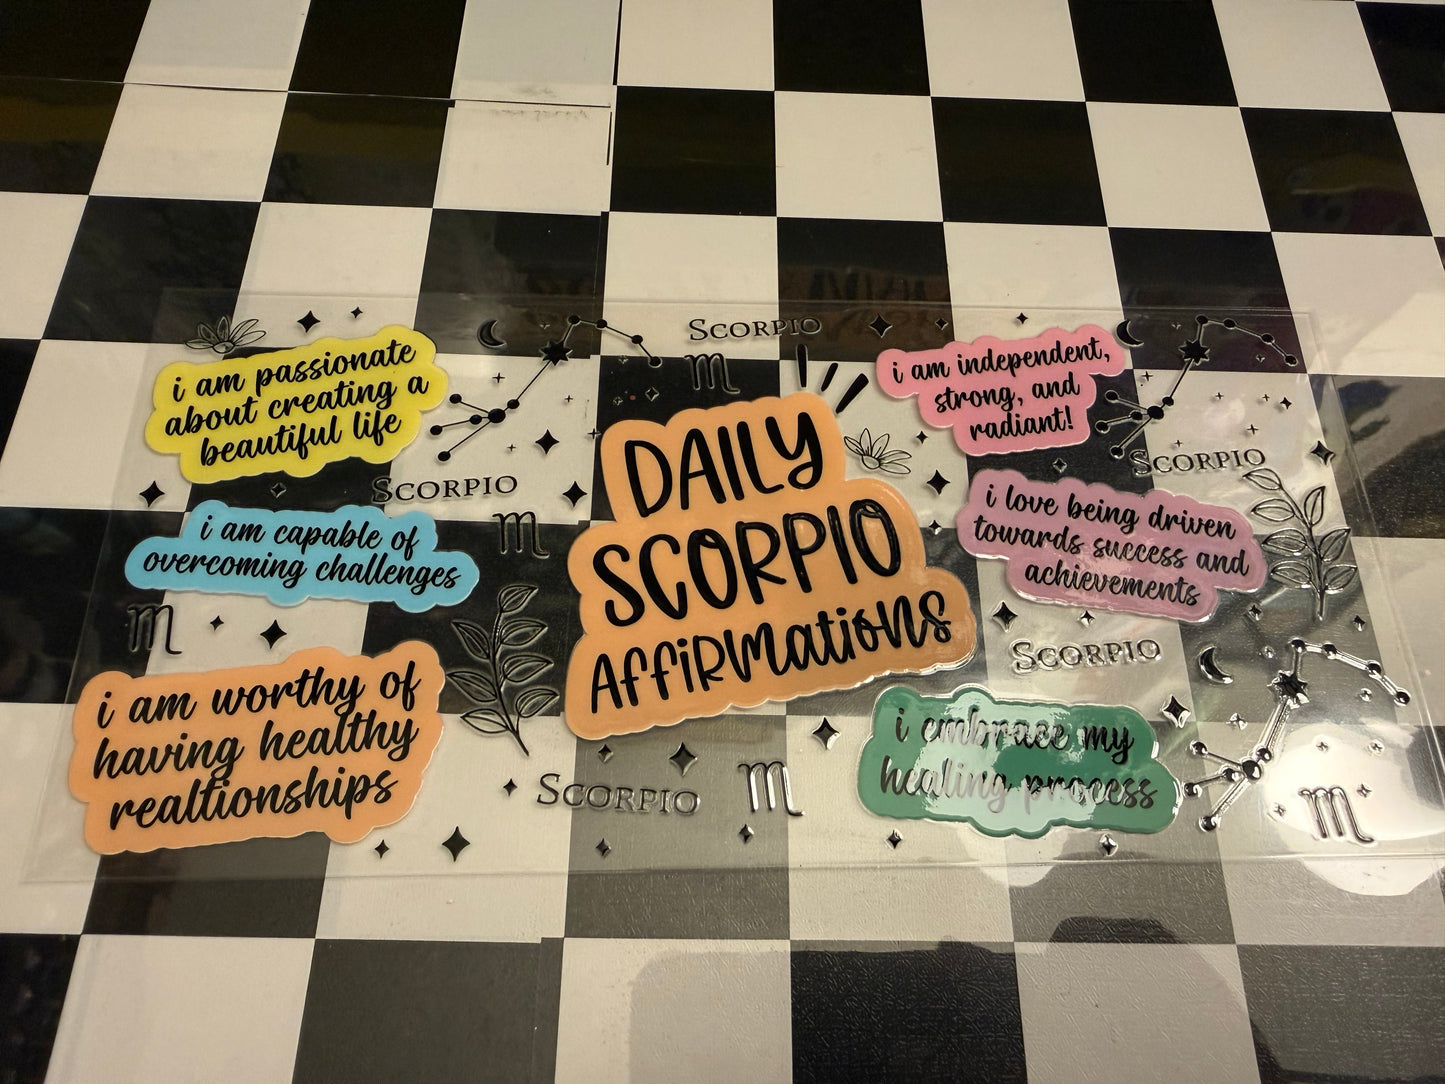 i am passionate
about creating a
beautiful life
i am capable of
overcoming challenges
i am worthy of
having healthy
realtionships
Scorpio
Scorpio
Scorpio
DAILY
SCORPIO
AFFiRMatioNS
i am independent,
strong, and
radiant!
Scorpio
i love being driven
towards success and
achievements
Scorpio
i embrace my
healing process